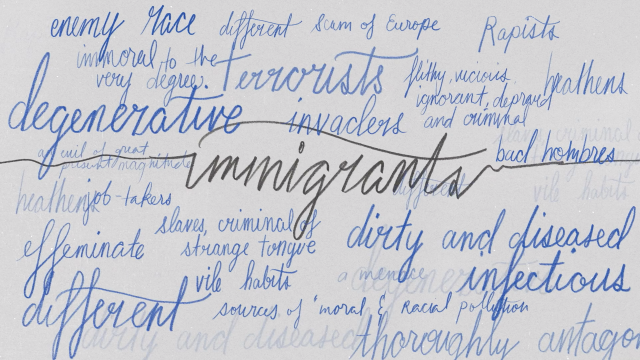 enemy race
different
Scum of Europe
Rapists
immoral to the
very degree.
Terrorists
filthy, vicious
ignorant, depraved
and criminal
heathens
degenerative
invaders
bad hombres
an evil of great
present magnitude
immigrants
different
vile habits
heathens
job-takers
slaves, criminal of
strange tongue
dirty and diseased
effeminate
vile habits
a menace
degenerative
infectious
different
sources of "moral & Racial pollution
dirty and diseased
thoroughly antagon